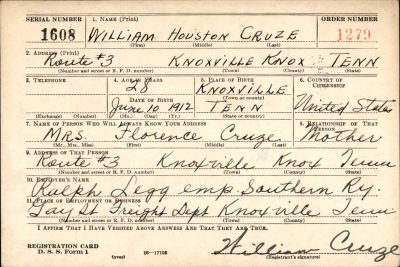 SERIAL NUMBER 1. NAME (Print) ORDER NUMBER
1608 WILLIAM HOUSTON CRUZE 1279
(First) (Middle) (Last)
2. ADDRESS (Print)
Route #3 KNOXVILLE KNOX TENN
(Number and street or R. F. D. number) (Town) (County) (State)
3. TELEPHONE 4. AGE IN YEARS 5. PLACE OF BIRTH 6. COUNTRY OF CITIZENSHIP
28 KNOXVILLE
DATE OF BIRTH (Town or county)
June 10 1912 TENN United States
(Exchange) (Number) (Mo.) (Day) (Yr.) (State or country)
7. NAME OF PERSON WHO WILL ALWAYS KNOW YOUR ADDRESS 8. RELATIONSHIP OF THAT PERSON
MRS. Florence Cruze Mother
(Mr., Mrs., Miss) (First) (Middle) (Last)
9. ADDRESS OF THAT PERSON
Route #3 Knoxville Knox Tenn
(Number and street or R. F. D. number) (Town) (County) (State)
10. EMPLOYER'S NAME
Ralph Legg emp. Southern Ry.
11. PLACE OF EMPLOYMENT OR BUSINESS
Gay St Freight Dept Knoxville Tenn
(Number and street or R. F. D. number) (Town) (County) (State)
I AFFIRM THAT I HAVE VERIFIED ABOVE ANSWERS AND THAT THEY ARE TRUE.
REGISTRATION CARD
D. S. S. Form 1 16—17105 William Cruze
(over) (Registrant's signature)